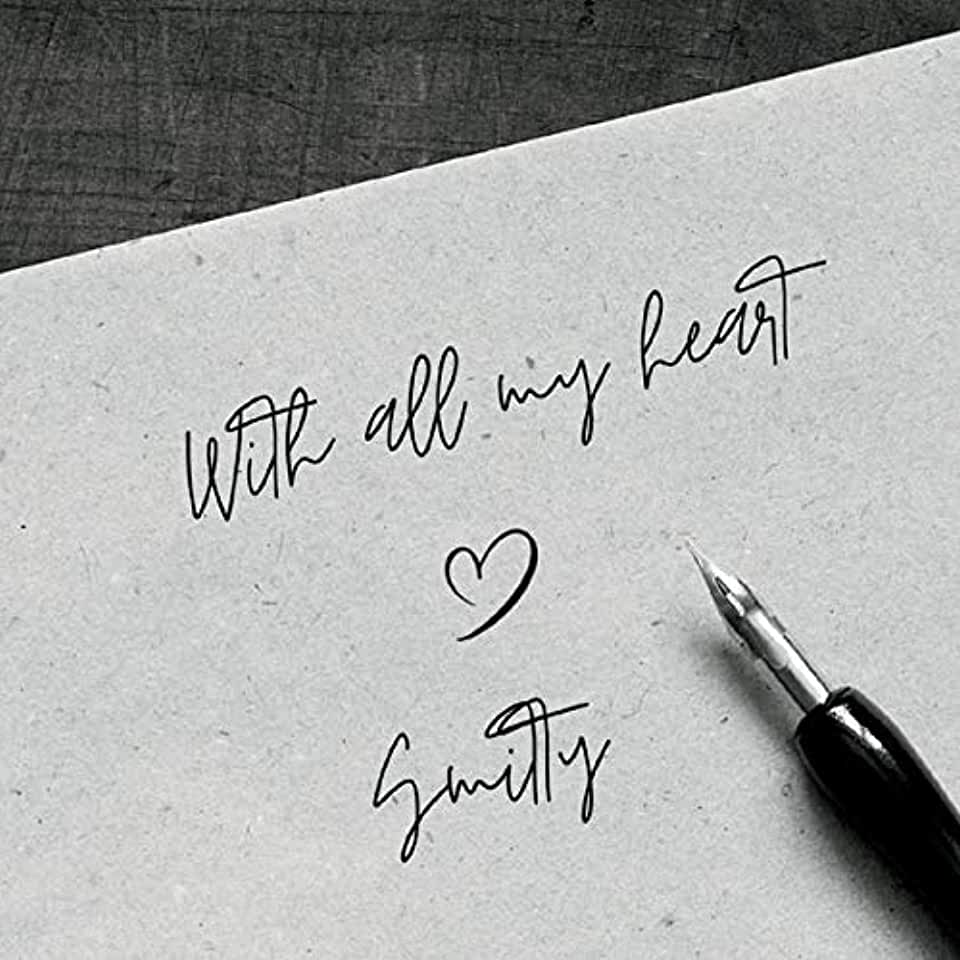 With all my heart
Smitty